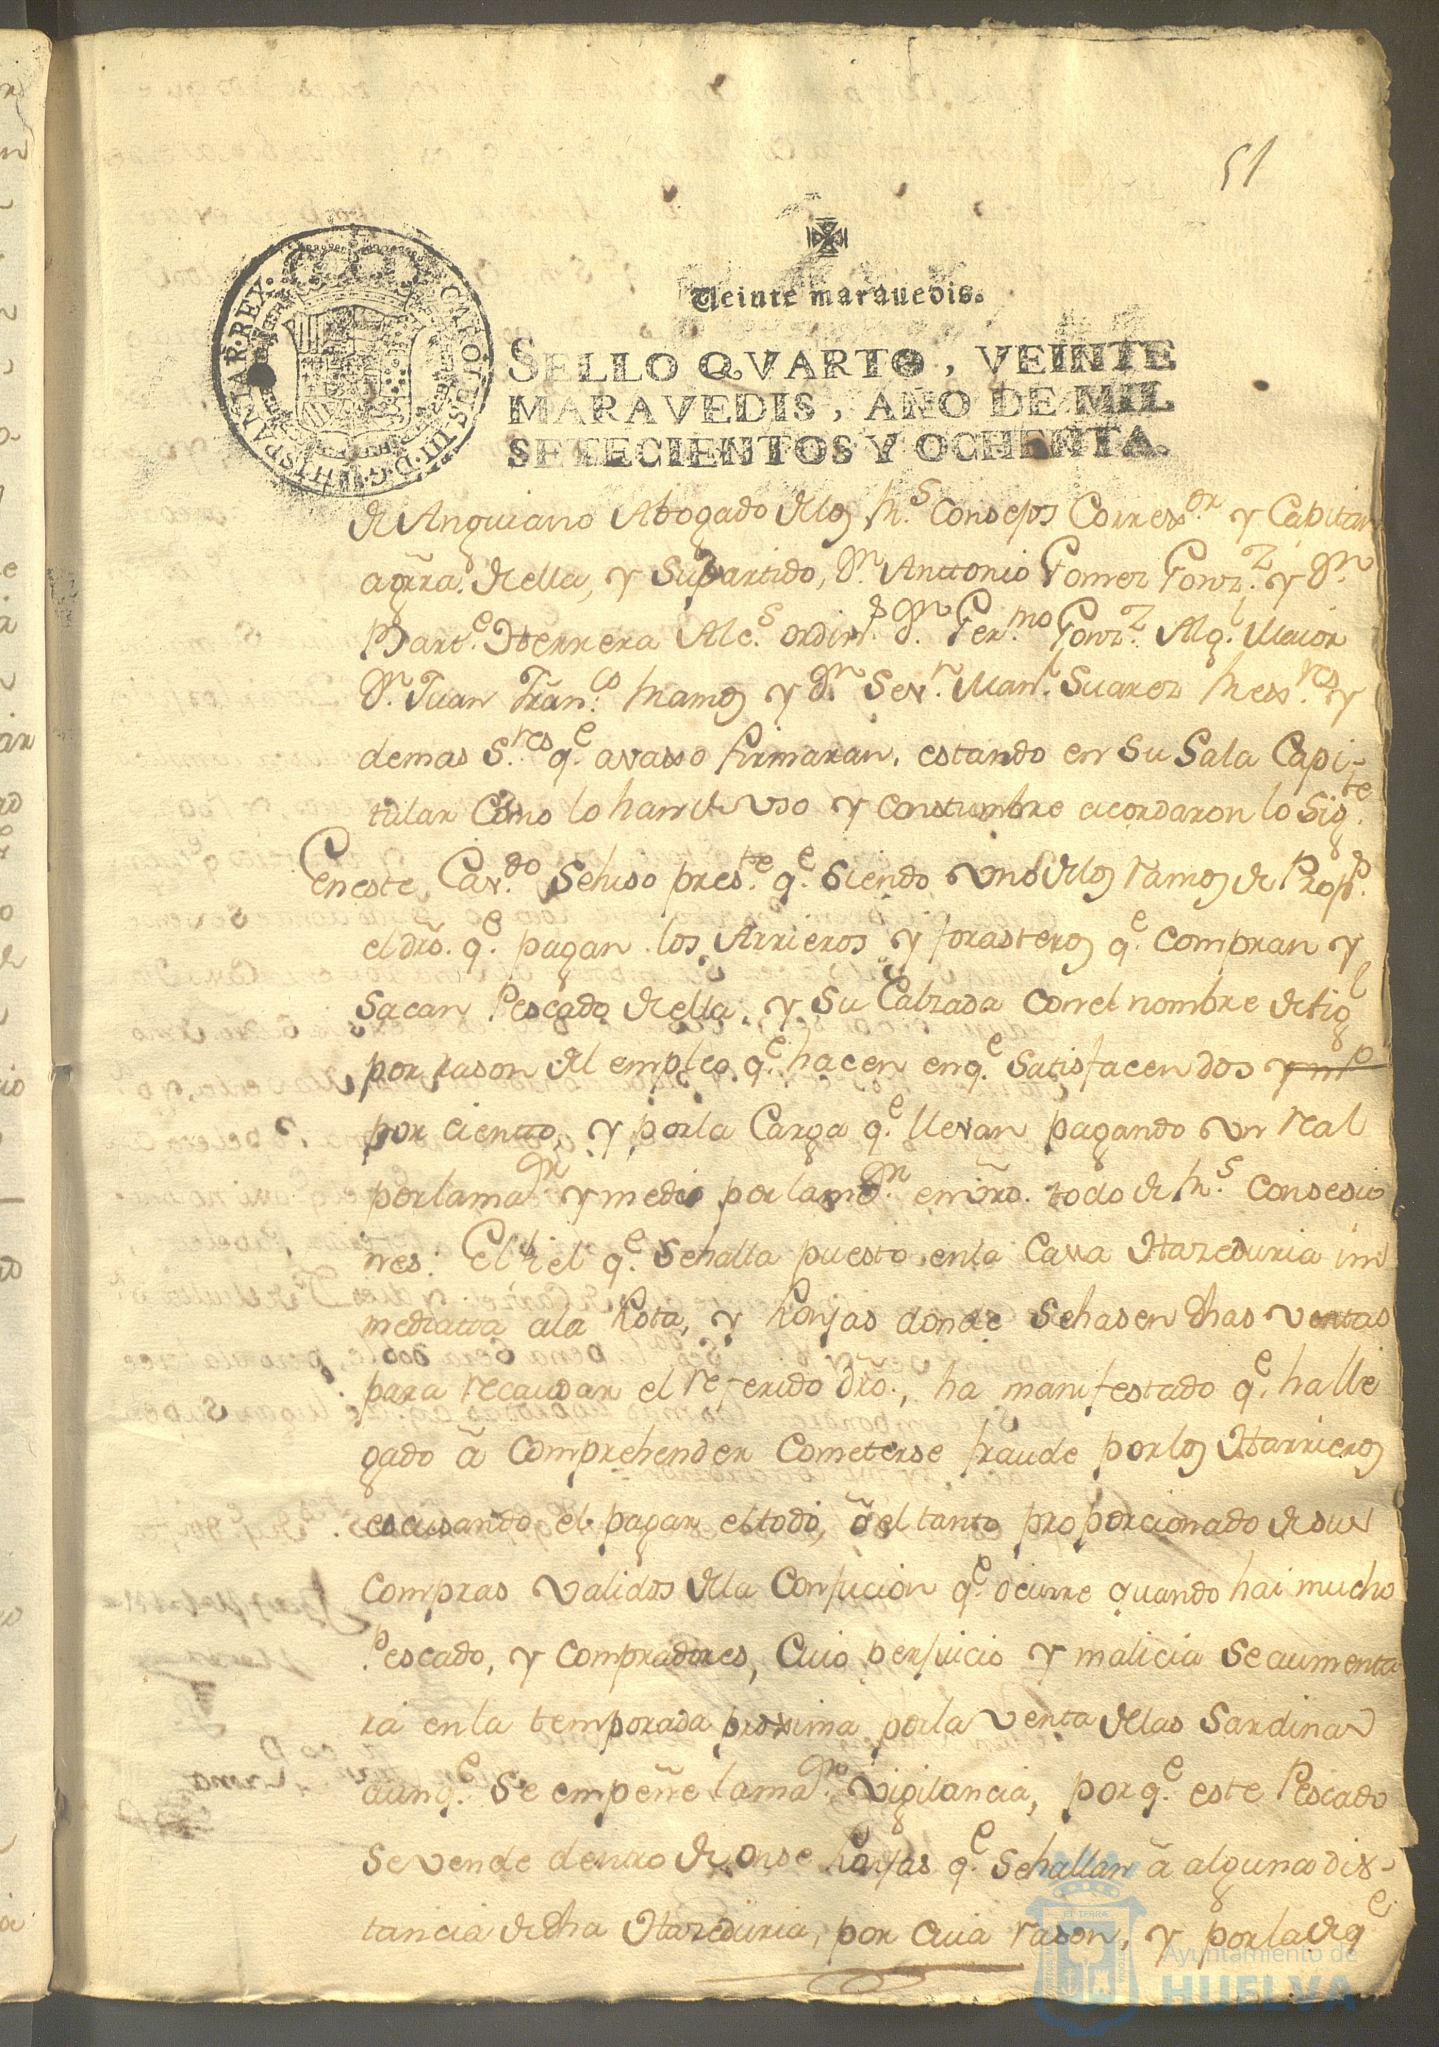 51
Veinte maravedis.
SELLO QVARTO, VEINTE
MARAVEDIS, AÑO DE MIL
SETECIENTOS Y OCHENTA.
CAROLUS III D G HISPANIAR REX
de Anguiano Abogado delos Rs. Consejos Correxor. y Capitan
aGrra. de ella, y Supartido, Dn. Anttonio Gomez Gonzz. y Dn.
Barte. Herrera Alcs. ordins. Dn. Germo. Gonzz. Alg. Maior
Dn. Juan Franco. Ramos y Dn. Sevn. Manl. Suarez Rexres. y
demas Sres. qe. avaxo firmaran, estando en Su Sala Capi-
tular Como lo han de Uso y Constumbre acordaron lo Sigte.
En este Cavdo. Sehiso preste. qe. Siendo uno delos ramos de Propps.
el dro. qe. pagan los Arrieros y forasteros qe. Compran y
Sacan Pescado de ella, y Su Calzada Con el nombre de fiel
por rason del empleo qe. hacen en qe. Satisfacen dos
por ciento, y por la Carga qe. llevan pagando un real
por lamaor. y medio por lamenor. en
todo de Rs. Consesio
nes. El fiel qe. Sehalla puesto en la Casa Hazeduria in
mediata ala Rota, y Ronjas donde Sehasen dhas ventas
para recaudar el referido dro., ha manifestado qe. ha lle
gado â Comprehender Cometerse fraude por los Harrieros
escusando el pagar el todo, ô el tanto proporcionado de sus
Compras validos dela Confucion qe. ocurre quando hai mucho
Pescado, y Compradores, Cuio perjuicio y malicia Se aumenta
ra en la temporada proxima por la venta delas Sardinas
aunqe. Se empeñe lamaor. vigilancia, por qe. este Pescado
Se vende dentro de onse Ronjas qe. Sehallan â alguna dis-
tancia de dha Hazeduria, por Cuia rason, y por la de qe.
Ayuntamiento de
HUELVA